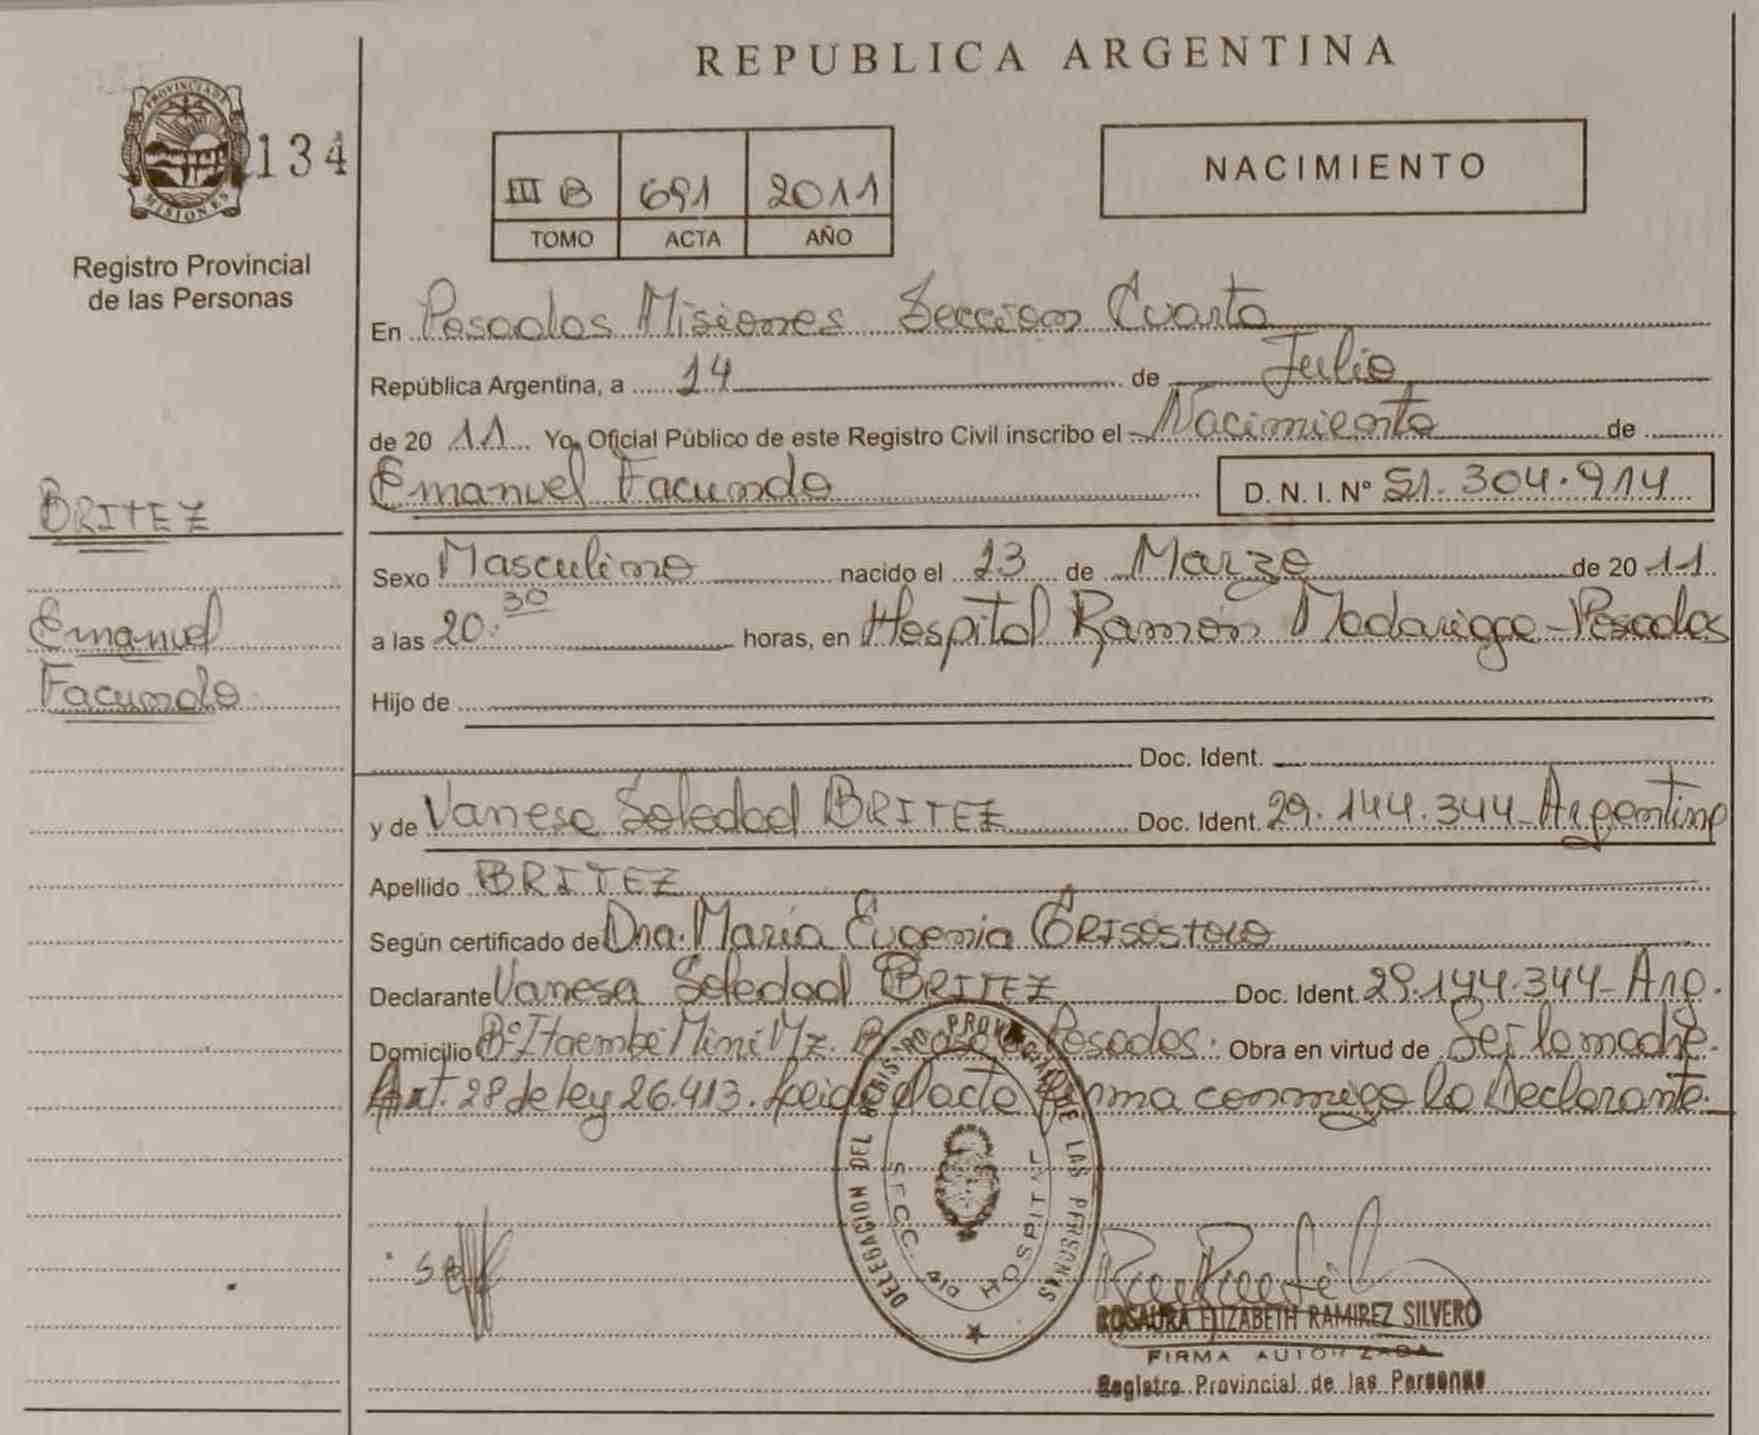 REPUBLICA ARGENTINA
PROVINCIA DE
MISIONES
134
Registro Provincial
de las Personas
III B 691 2011
TOMO ACTA AÑO
NACIMIENTO
En Posadas Misiones Seccion Cuarta
República Argentina, a 14 de Julio
de 20 11 Yo, Oficial Público de este Registro Civil inscribo el Nacimiento de
Emanuel Facundo D. N. I. Nº 51.304.914
BRITEZ
Emanuel
Facundo
Sexo Masculino nacido el 13 de Marzo de 20 11
a las 20.30 horas, en Hospital Ramón Madariaga - Posadas
Hijo de
Doc. Ident.
y de Vanesa Soledad BRITEZ Doc. Ident. 29.144.344 - Argentina
Apellido BRITEZ
Según certificado de Dra. María Eugenia CRISOSTOMO
Declarante Vanesa Soledad BRITEZ Doc. Ident. 29.144.344 - Arg.
Domicilio Bº Itaembé Mini Mz. Posadas. Obra en virtud de Ser la madre.
Art. 28 de ley 26.413. Leida el acta firma conmigo la Declarante.
DELEGACION DEL REGISTRO PROVINCIAL DE LAS PERSONAS
SECC. 4ta HOSPITAL
ROSAURA ELIZABETH RAMIREZ SILVERO
FIRMA AUTORIZADA
Registro Provincial de las Personas